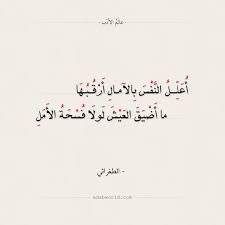 عالم الأدب
أُعَلِّلُ النَّفْسَ بِالآمالِ أَرْقُبُهَا
ما أَضْيَقَ العَيْشَ لَولَا فُسْحَةُ الأَمَلِ
- الطغرائي
adabworld.com